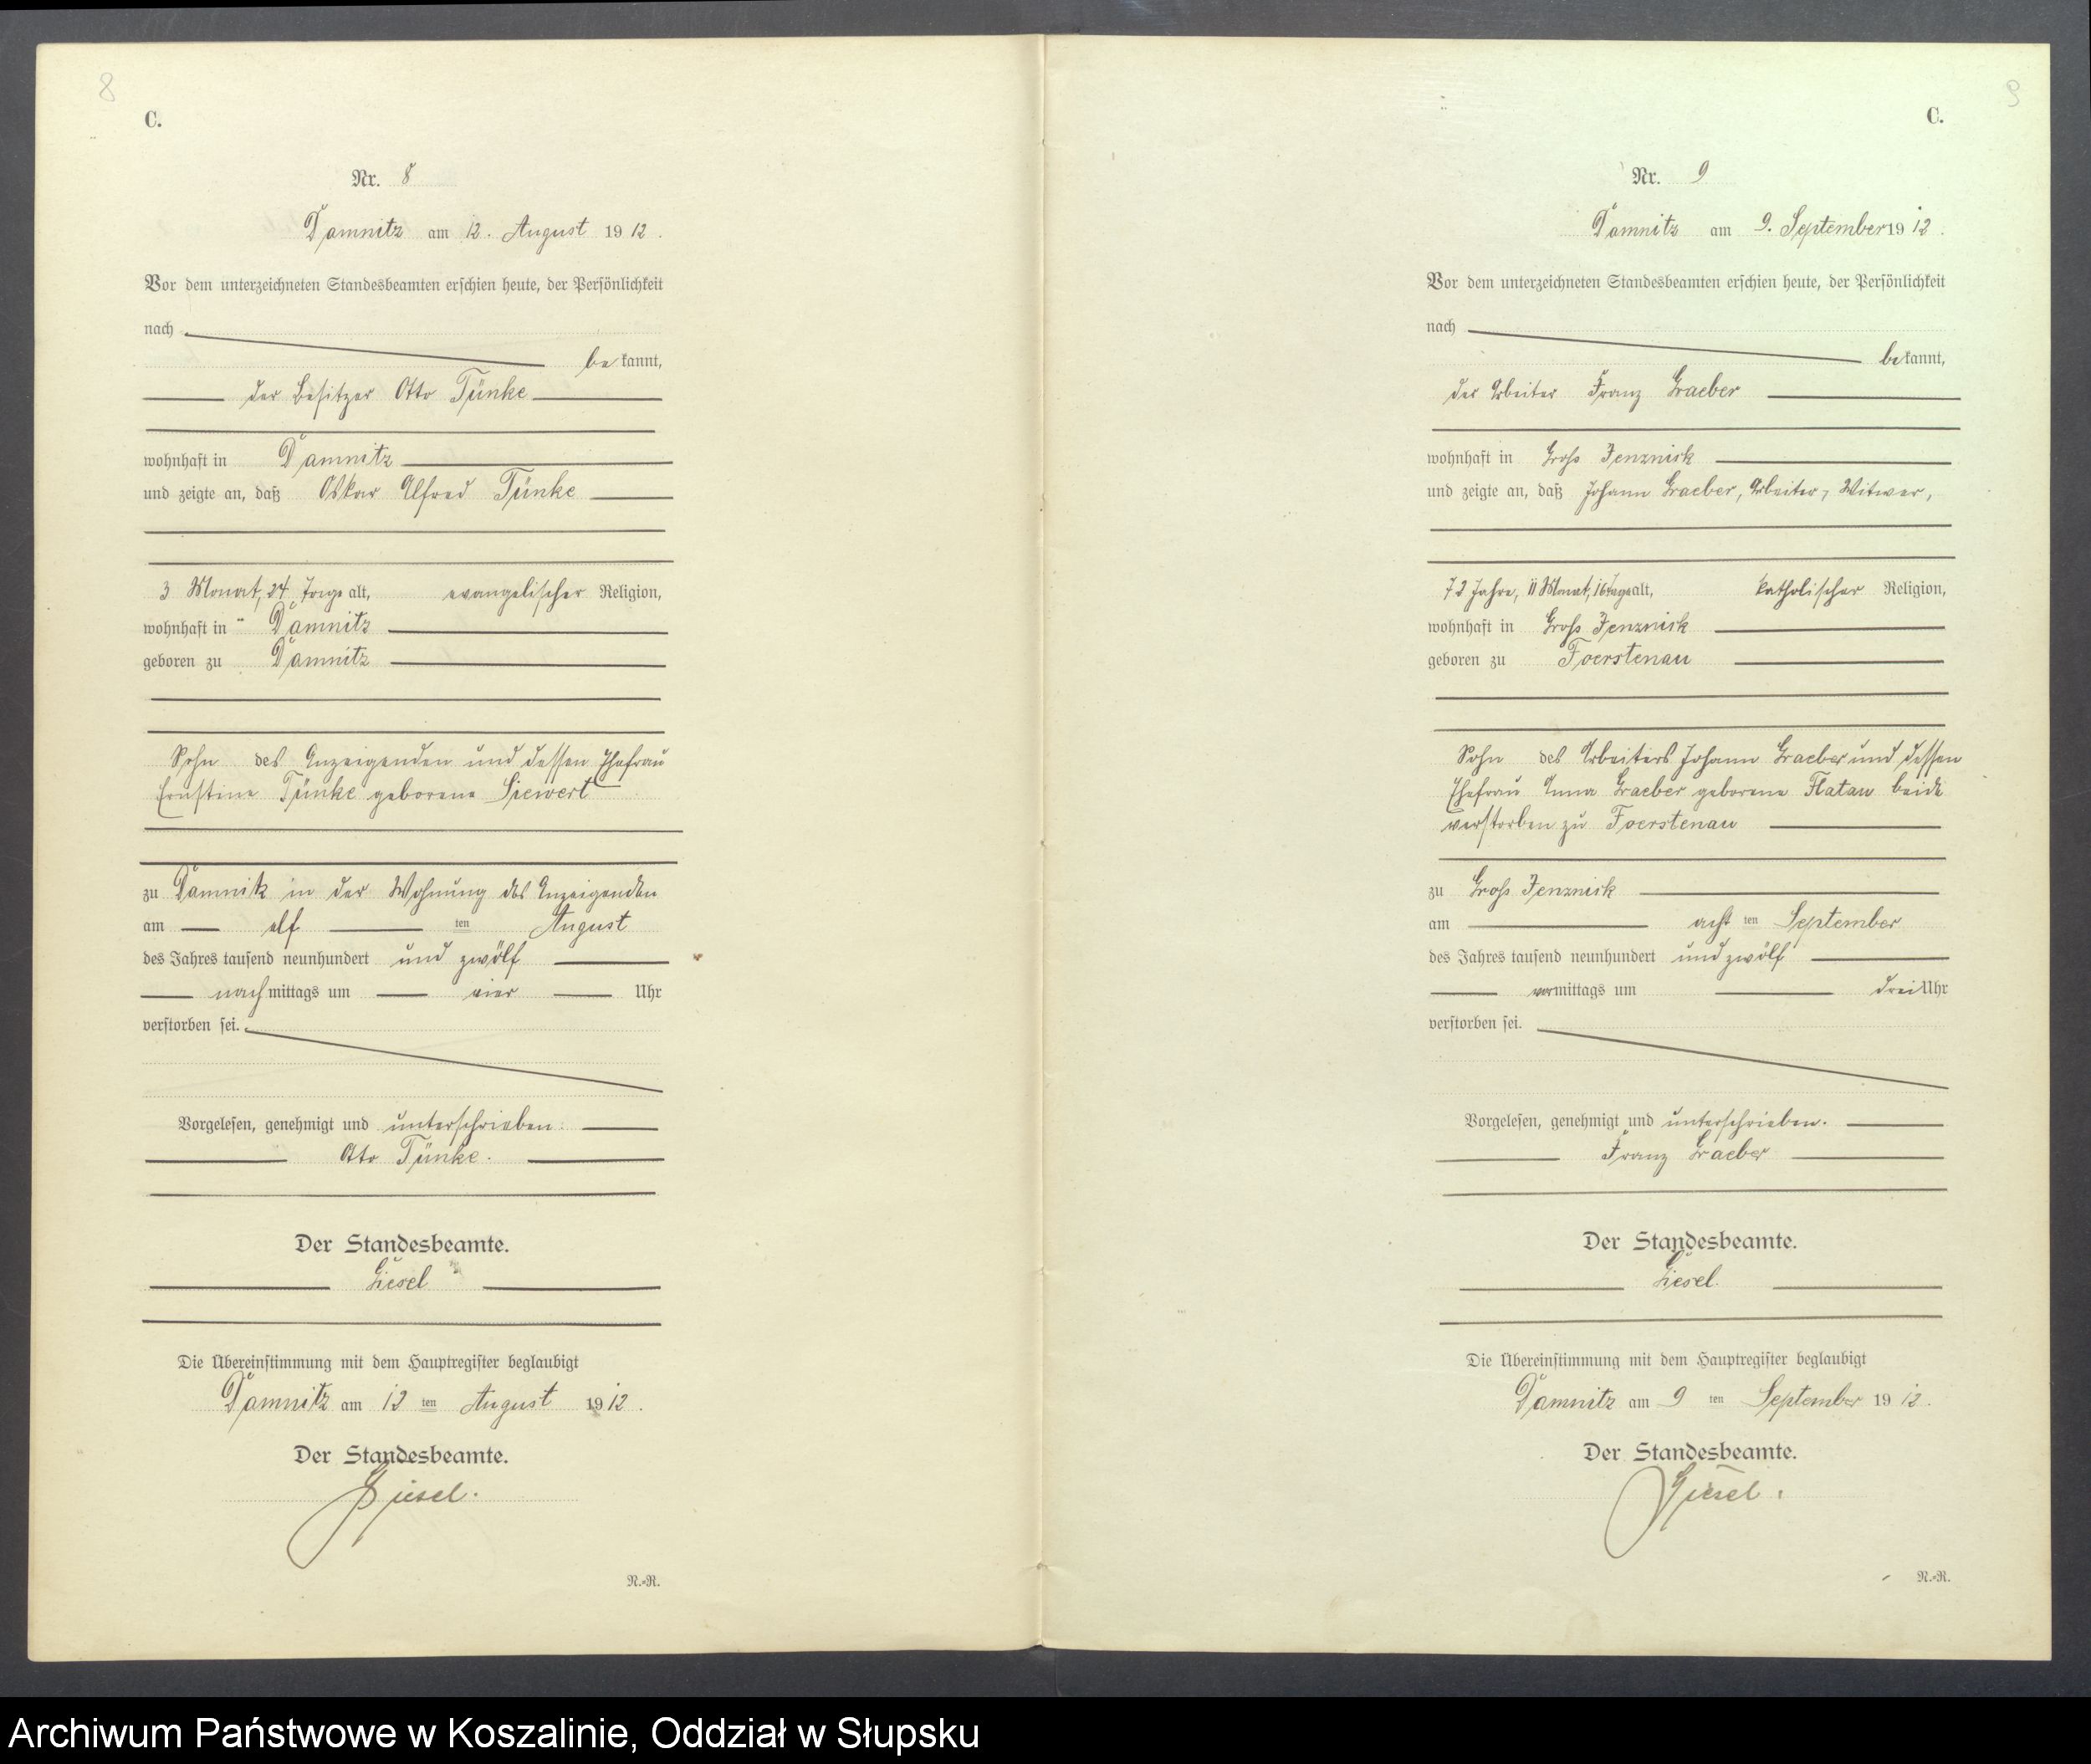 8
C.
Nr. 8
Damnitz am 12. August 1912.
Vor dem unterzeichneten Standesbeamten erschien heute, der Persönlichkeit
nach
bekannt,
der Besitzer Otto Tünke
wohnhaft in Damnitz
und zeigte an, daß Oskar Alfred Tünke
3 Monat, 24 Tage alt, evangelischer Religion,
wohnhaft in Damnitz
geboren zu Damnitz
Sohn des Anzeigenden und dessen Ehefrau
Ernstine Tünke geborene Siewert
zu Damnitz in der Wohnung des Anzeigenden
am elf ten August
des Jahres tausend neunhundert und zwölf
nachmittags um vier Uhr
verstorben sei.
Vorgelesen, genehmigt und unterschrieben.
Otto Tünke.
Der Standesbeamte.
Giesel
Die Übereinstimmung mit dem Hauptregister beglaubigt
Damnitz am 12 ten August 1912.
Der Standesbeamte.
Giesel.
N.=R.
9
C.
Nr. 9
Damnitz am 9. September 1912.
Vor dem unterzeichneten Standesbeamten erschien heute, der Persönlichkeit
nach
bekannt,
der Arbeiter Franz Graeber
wohnhaft in Groß Jenznick
und zeigte an, daß Johann Graeber, Arbeiter, Witwer,
72 Jahre, 11 Monat, 16 Tage alt, katholischer Religion,
wohnhaft in Groß Jenznick
geboren zu Foerstenau
Sohn des Arbeiters Johann Graeber und dessen
Ehefrau Anna Graeber geborene Flatau beide
verstorben zu Foerstenau
zu Groß Jenznick
am acht ten September
des Jahres tausend neunhundert und zwölf
vormittags um drei Uhr
verstorben sei.
Vorgelesen, genehmigt und unterschrieben.
Franz Graeber
Der Standesbeamte.
Giesel.
Die Übereinstimmung mit dem Hauptregister beglaubigt
Damnitz am 9 ten September 1912.
Der Standesbeamte.
Giesel.
N.=R.
Archiwum Państwowe w Koszalinie, Oddział w Słupsku